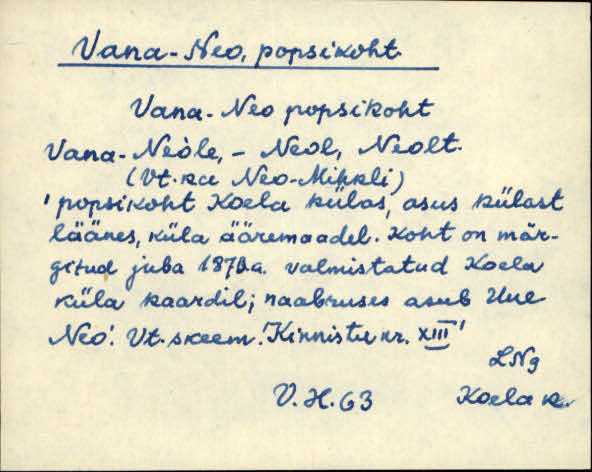 Vana-Neo, popsikoht.
Vana-Neo popsikoht
Vana-Neòle, - Neol, Neolt.
(Vt. ka Neo-Mihkli)
'popsikoht Koela külas, asus külast
läänes, küla ääremaadel. Koht on mär-
gitud juba 1870.a. valmistatud Koela
küla kaardil; naabruses asub Uue
Neo! Vt. skeem! Kinnistu nr. XIII'
LNg
V.H. 63 Koela k.